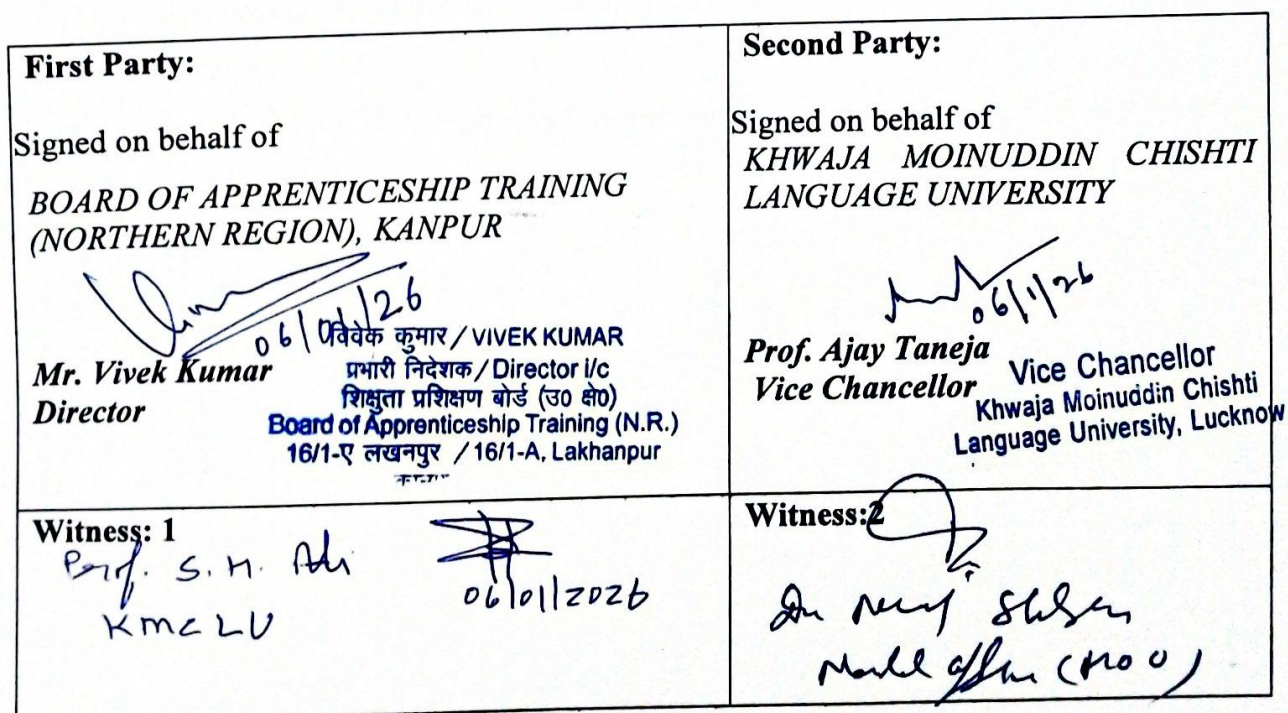 First Party:
Signed on behalf of
BOARD OF APPRENTICESHIP TRAINING
(NORTHERN REGION), KANPUR
06/01/26
विवेक कुमार / VIVEK KUMAR
प्रभारी निदेशक / Director i/c
शिक्षुता प्रशिक्षण बोर्ड (उ० क्षे०)
Board of Apprenticeship Training (N.R.)
16/1-ए लखनपुर / 16/1-A, Lakhanpur
Mr. Vivek Kumar
Director
Second Party:
Signed on behalf of
KHWAJA MOINUDDIN CHISHTI
LANGUAGE UNIVERSITY
06/1/26
Prof. Ajay Taneja
Vice Chancellor
Vice Chancellor
Khwaja Moinuddin Chishti
Language University, Lucknow
Witness: 1
Prof. S. H. Ali
KMCLU
06/01/2026
Witness:2
Dr
(MOU)